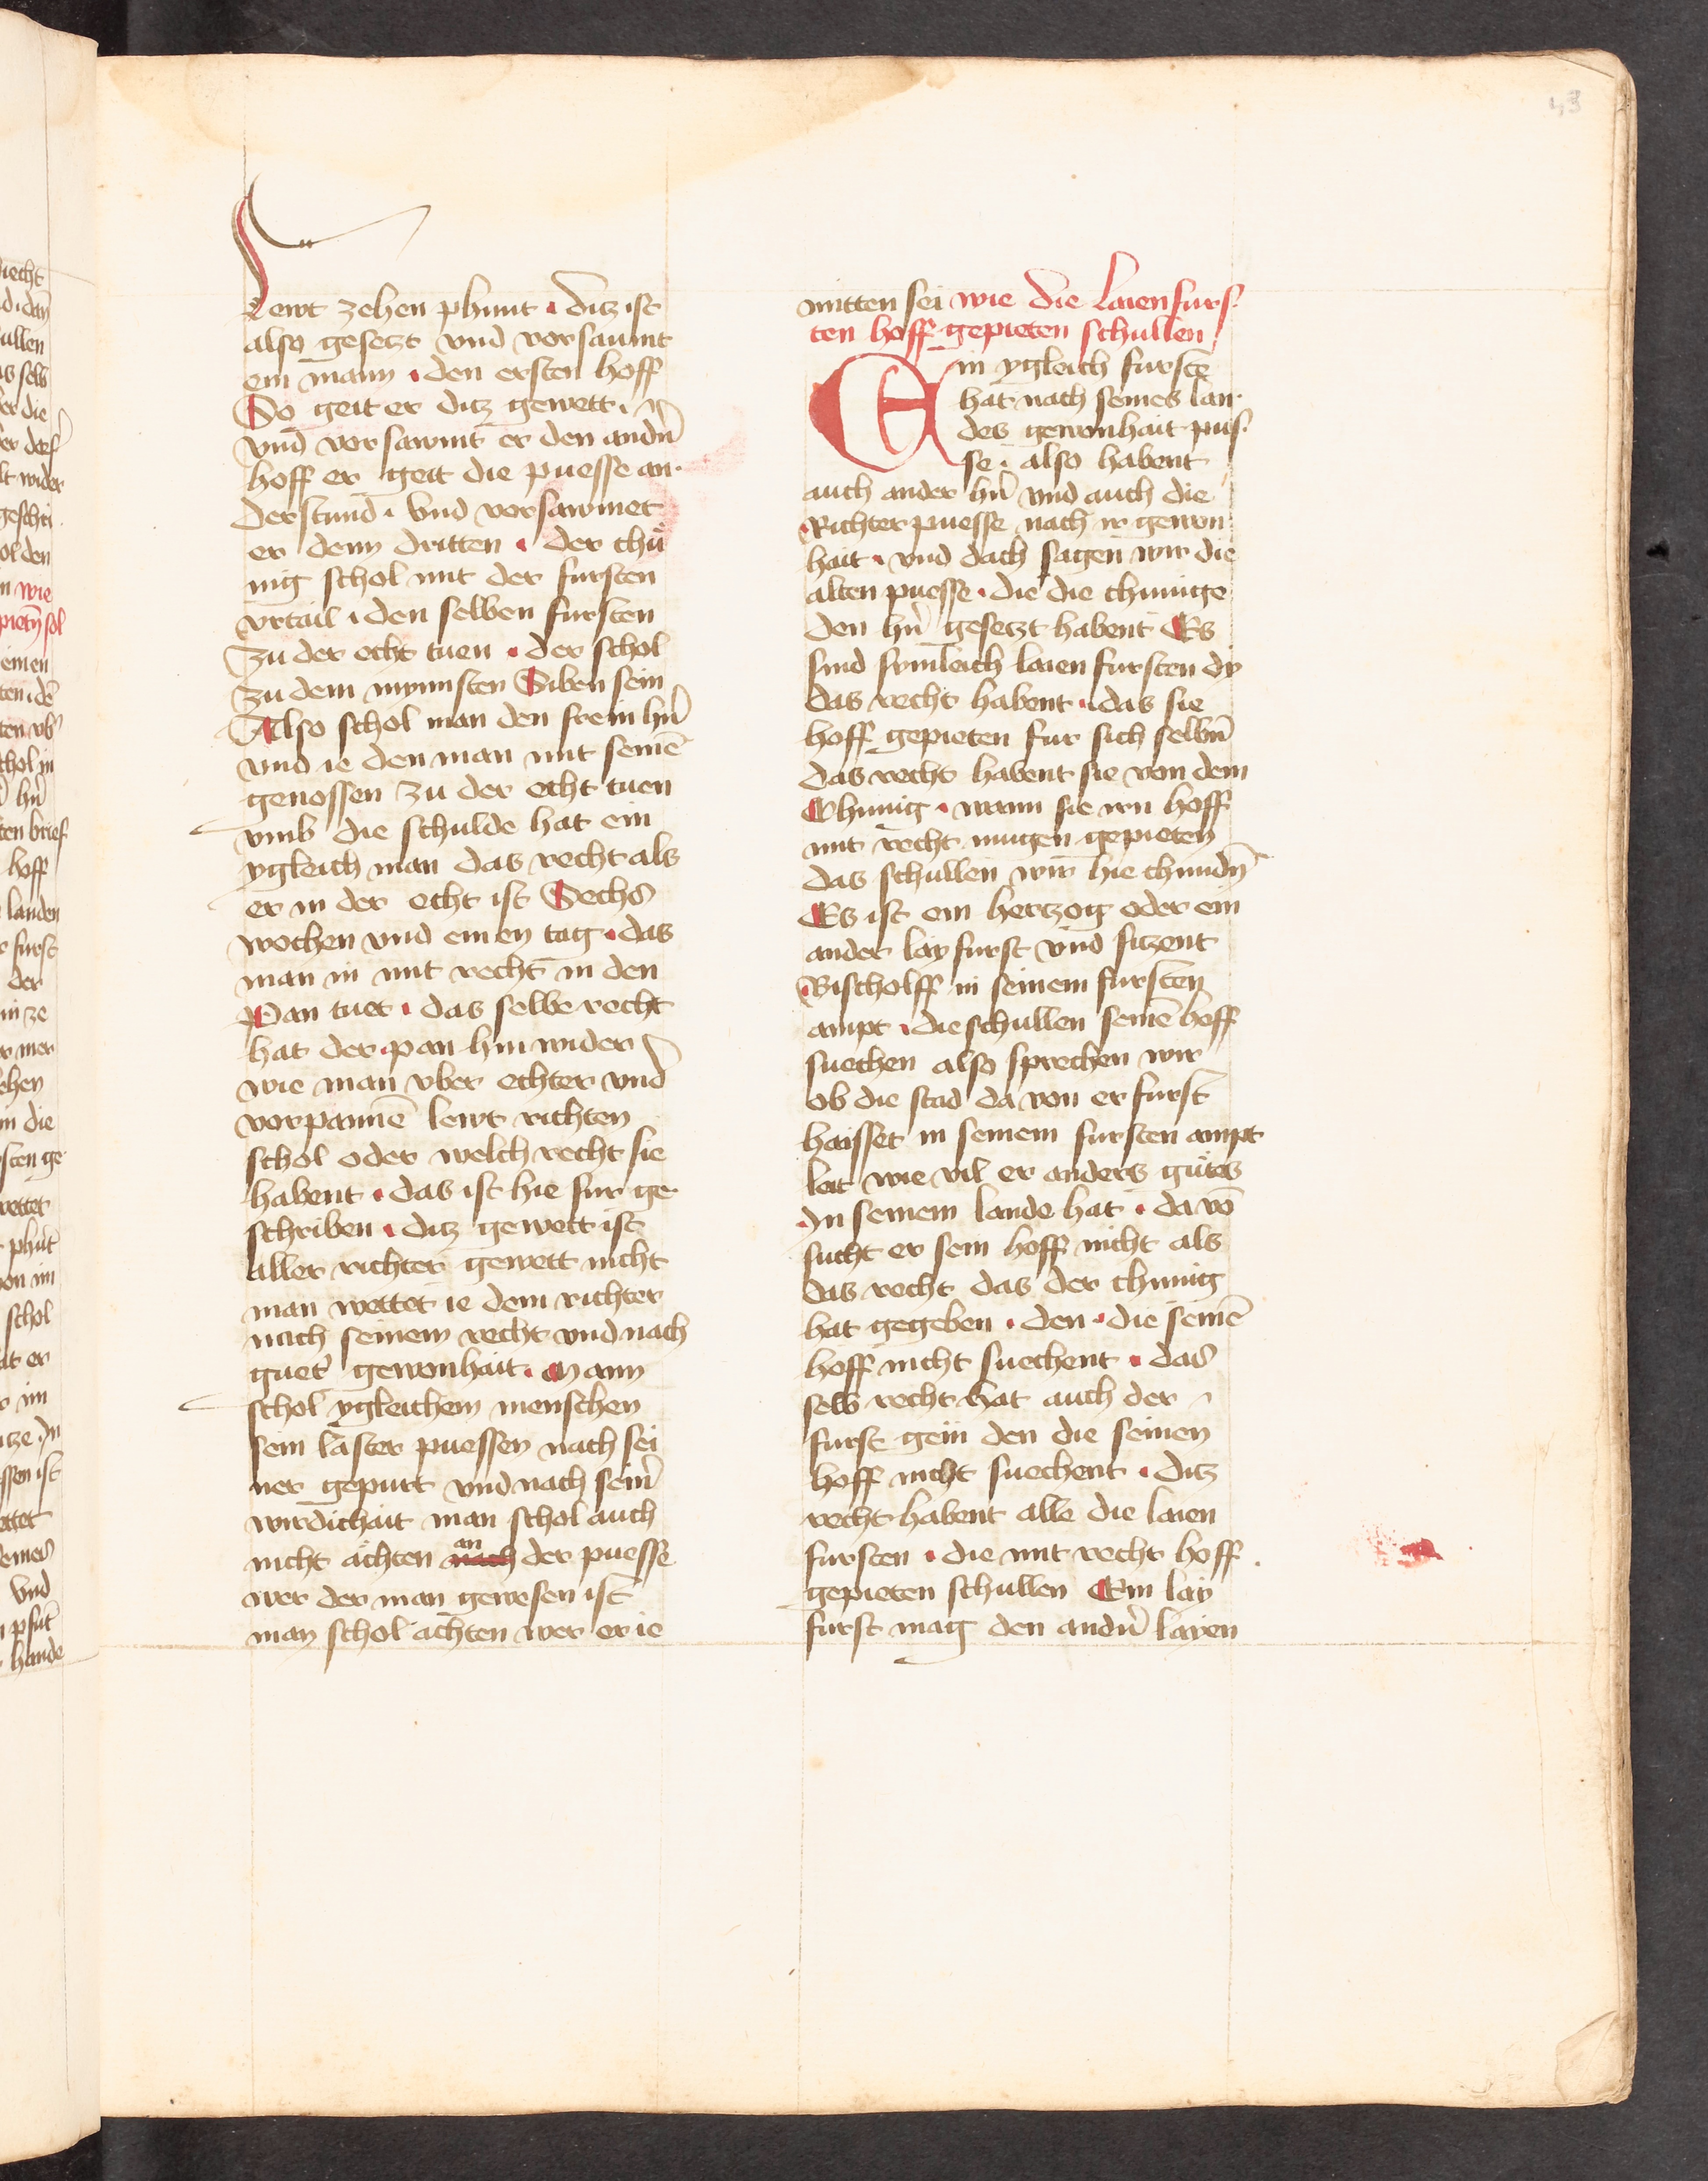 43
Lewt zehen phunt · ditz ist
also gesetzt vnd vorsaumt
ein mann · den ersten hoff
So geit er ditz gewett ·
vnd vorsawmt er den andn̄
hoff er geit die puesse an-
derstund · Vnd vorsawmet
er denn dritten · der chu-
nig schol mit der fursten
vrtail · den selben fursten
zu der echt tuen · der schol
zu dem mynnsten Siben sein
Also schol man den frein hn̄
vnd ie den man mit seinē
genossen zu der echt tuen
vmb die schulde hat ein
ygleich man das recht als
er in der echt ist Sechs
wochen vnd einen tag · das
man in mit recht in den
Pan tuet · das selbe recht
hat der pan hin wider
wie man vber echter vnd
vorpannē lewt richten
schol oder welch recht sie
habent · das ist hie fur ge-
schriben · ditz gewett ist
aller richter gewett nicht
man wettet ie dem richter
nach seinem recht vnd nach
guet' gewonhait · Mann
schol ygleichem menschen
sein laster puessen nach sei
ner gepurt vnd nach sein'
wirdichait man schol auch
nicht ächten an nach der puesse
wer der man gewesen ist
man schol achten wer er ie
mitten sei wie die laien furs-
ten hoff gepieten schullen
Ein ygleich furste
hat nach seines lan-
des gewonhait pus-
se · also habent
auch ander hn̄ vnd auch die
Richter puesse nach ir gewon
hait · vnd dach sagen wir die
alten puesse · die die chunige
den hn̄ gesetzt habent Es
sind sumleich laien fursten dy
das recht habent · das sie
hoff gepieten fur sich selbn̄
das recht habent sie von dem
Chunig · wann sie irn hoff
mit recht mugen gepieten
das schullen wir hie chundn̄
Es ist ein hertzog oder ein
ander lay furst vnd sitzent
Bischolff in seinem fursten
ampt · die schullen seinē hoff
suechen also sprechen wir
ob die stad da von er furst
haisset in seinem fursten ampt
leit wie vil er anders gutes
In seinem lande hat · da vō
sucht er sein hoff nicht als
das recht das der chunig
hat gegeben · den · die seinē
hoff nicht suechent · das
selb recht hat auch der
furst gein den die seinen
hoff nicht suechent · ditz
recht habent alle die laien
fursten · die mit recht hoff
gepieten schullen Ein lay
furst mag den andn̄ layen